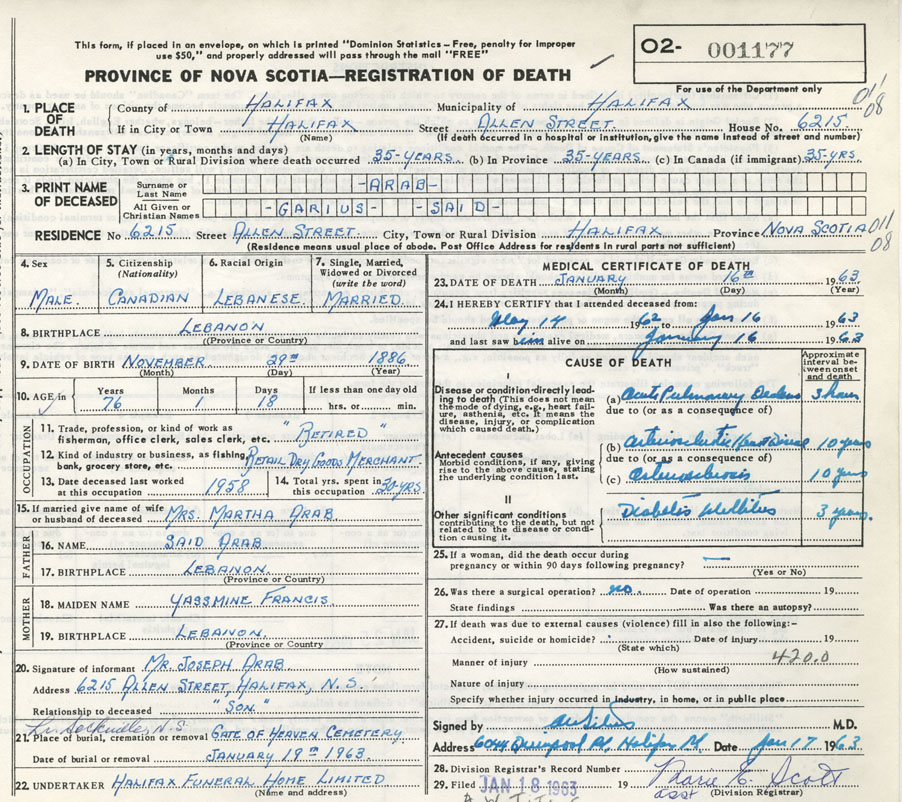 This form, if placed in an envelope, on which is printed "Dominion Statistics—Free, penalty for improper
use $50," and properly addressed will pass through the mail "FREE"
O2- 001177
PROVINCE OF NOVA SCOTIA—REGISTRATION OF DEATH
For use of the Department only
1. PLACE OF DEATH County of HALIFAX Municipality of HALIFAX
If in City or Town HALIFAX Street ALLEN STREET House No. 6215
(Name) (If death occurred in a hospital or institution, give the name instead of street and number)
2. LENGTH OF STAY (in years, months and days)
(a) In City, Town or Rural Division where death occurred 35-YEARS (b) In Province 35-YEARS (c) In Canada (if immigrant) 35-YRS
3. PRINT NAME OF DECEASED Surname or Last Name -ARAB-
All Given or Christian Names -GARIUS- -SAID-
RESIDENCE No 6215 Street ALLEN STREET City, Town or Rural Division HALIFAX Province NOVA SCOTIA
(Residence means usual place of abode. Post Office Address for residents in rural parts not sufficient)
011
08
4. Sex MALE.
5. Citizenship (Nationality) CANADIAN
6. Racial Origin LEBANESE.
7. Single, Married, Widowed or Divorced (write the word) MARRIED.
8. BIRTHPLACE LEBANON
((Province or Country)
9. DATE OF BIRTH NOVEMBER 29th 1886
(Month) (Day) (Year)
10. AGE in Years 76 Months 1 Days 18 If less than one day old hrs. or min.
OCCUPATION
11. Trade, profession, or kind of work as fisherman, office clerk, sales clerk, etc. "RETIRED"
12. Kind of industry or business, as fishing, bank, grocery store, etc. RETAIL DRY GOODS MERCHANT.
13. Date deceased last worked at this occupation 1958
14. Total yrs. spent in this occupation 30-YRS.
15. If married give name of wife or husband of deceased MRS. MARTHA ARAB.
FATHER
16. NAME SAID ARAB.
17. BIRTHPLACE LEBANON.
(Province or Country)
MOTHER
18. MAIDEN NAME YASSMINE FRANCIS.
19. BIRTHPLACE LEBANON.
(Province or Country)
20. Signature of informant MR. JOSEPH ARAB
Address 6215 ALLEN STREET, HALIFAX, N.S.
Relationship to deceased "SON."
N.S.
21. Place of burial, cremation or removal GATE OF HEAVEN CEMETERY.
Date of burial or removal JANUARY 19th 1963.
22. UNDERTAKER HALIFAX FUNERAL HOME LIMITED
(Name and address)
MEDICAL CERTIFICATE OF DEATH
23. DATE OF DEATH JANUARY 16th 1963.
(Month) (Day) (Year)
24. I HEREBY CERTIFY that I attended deceased from:
May 14 1962 to Jan 16 1963
and last saw him alive on January 16 1963
CAUSE OF DEATH
Approximate interval between onset and death
I
Disease or condition directly leading to death (This does not mean the mode of dying, e.g., heart failure, asthenia, etc. It means the disease, injury, or complication which caused death.)
(a) Acute Pulmonary Oedema 3 hours
due to (or as a consequence of)
Antecedent causes
Morbid conditions, if any, giving rise to the above cause, stating the underlying condition last.
(b) Arteriosclerotic Heart Disease 10 years
due to (or as a consequence of)
(c) Arteriosclerosis 10 years
II
Other significant conditions contributing to the death, but not related to the disease or condition causing it.
Diabetis Mellitus 3 years.
25. If a woman, did the death occur during pregnancy or within 90 days following pregnancy? —
(Yes or No)
26. Was there a surgical operation? no. Date of operation 19
State findings Was there an autopsy?
27. If death was due to external causes (violence) fill in also the following:-
Accident, suicide or homicide? Date of injury 19
(State which)
420.0
Manner of injury
(How sustained)
Nature of injury
Specify whether injury occurred in industry, in home, or in public place
Signed by M.D.
Address Halifax Date Jan 17 1963.
28. Division Registrar's Record Number
29. Filed JAN 18 1963 19 Marie E. Scott
asst (Division Registrar)